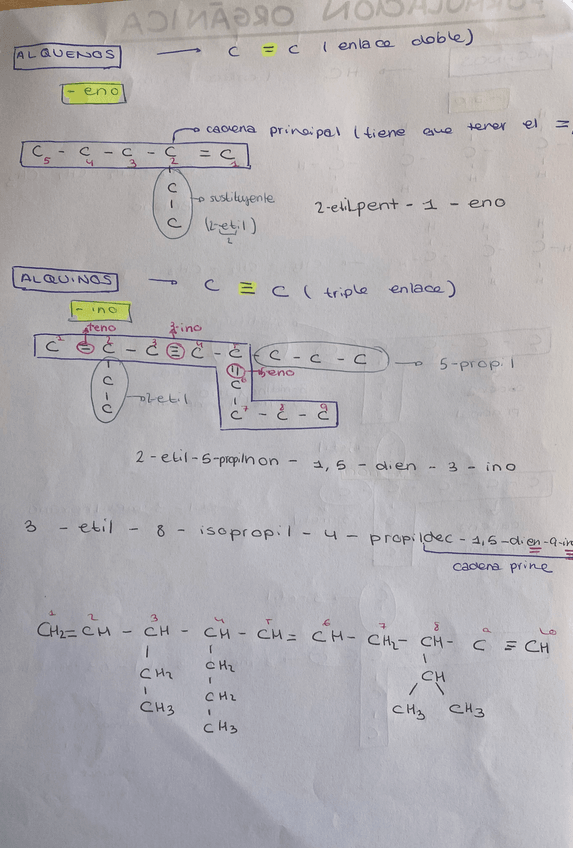 ALQUENOS → C = C (enlace doble)
- eno
cadena principal (tiene que tener el =
C5 - C4 - C3 - C2 = C1
C
C
sustituyente
(2-etil)
2
2-etilpent - 1 - eno
ALQUINOS → C ≡ C (triple enlace)
- ino
1eno 3-ino
C1 = C2 - C3 ≡ C4 - C5 - C - C - C → 5-propil
5eno
C C6
C 2-etil
C7 - C8 - C9
2-etil-5-propilnon - 1,5 - dien - 3 - ino
3 - etil - 8 - isopropil - 4 - propildec - 1,5-dien-9-in
cadena princ
1 2 3 4 5 6 7 8 9 10
CH2=CH - CH - CH - CH = CH - CH2 - CH - C ≡ CH
CH2 CH2 CH
CH3 CH2 CH3 CH3
CH3